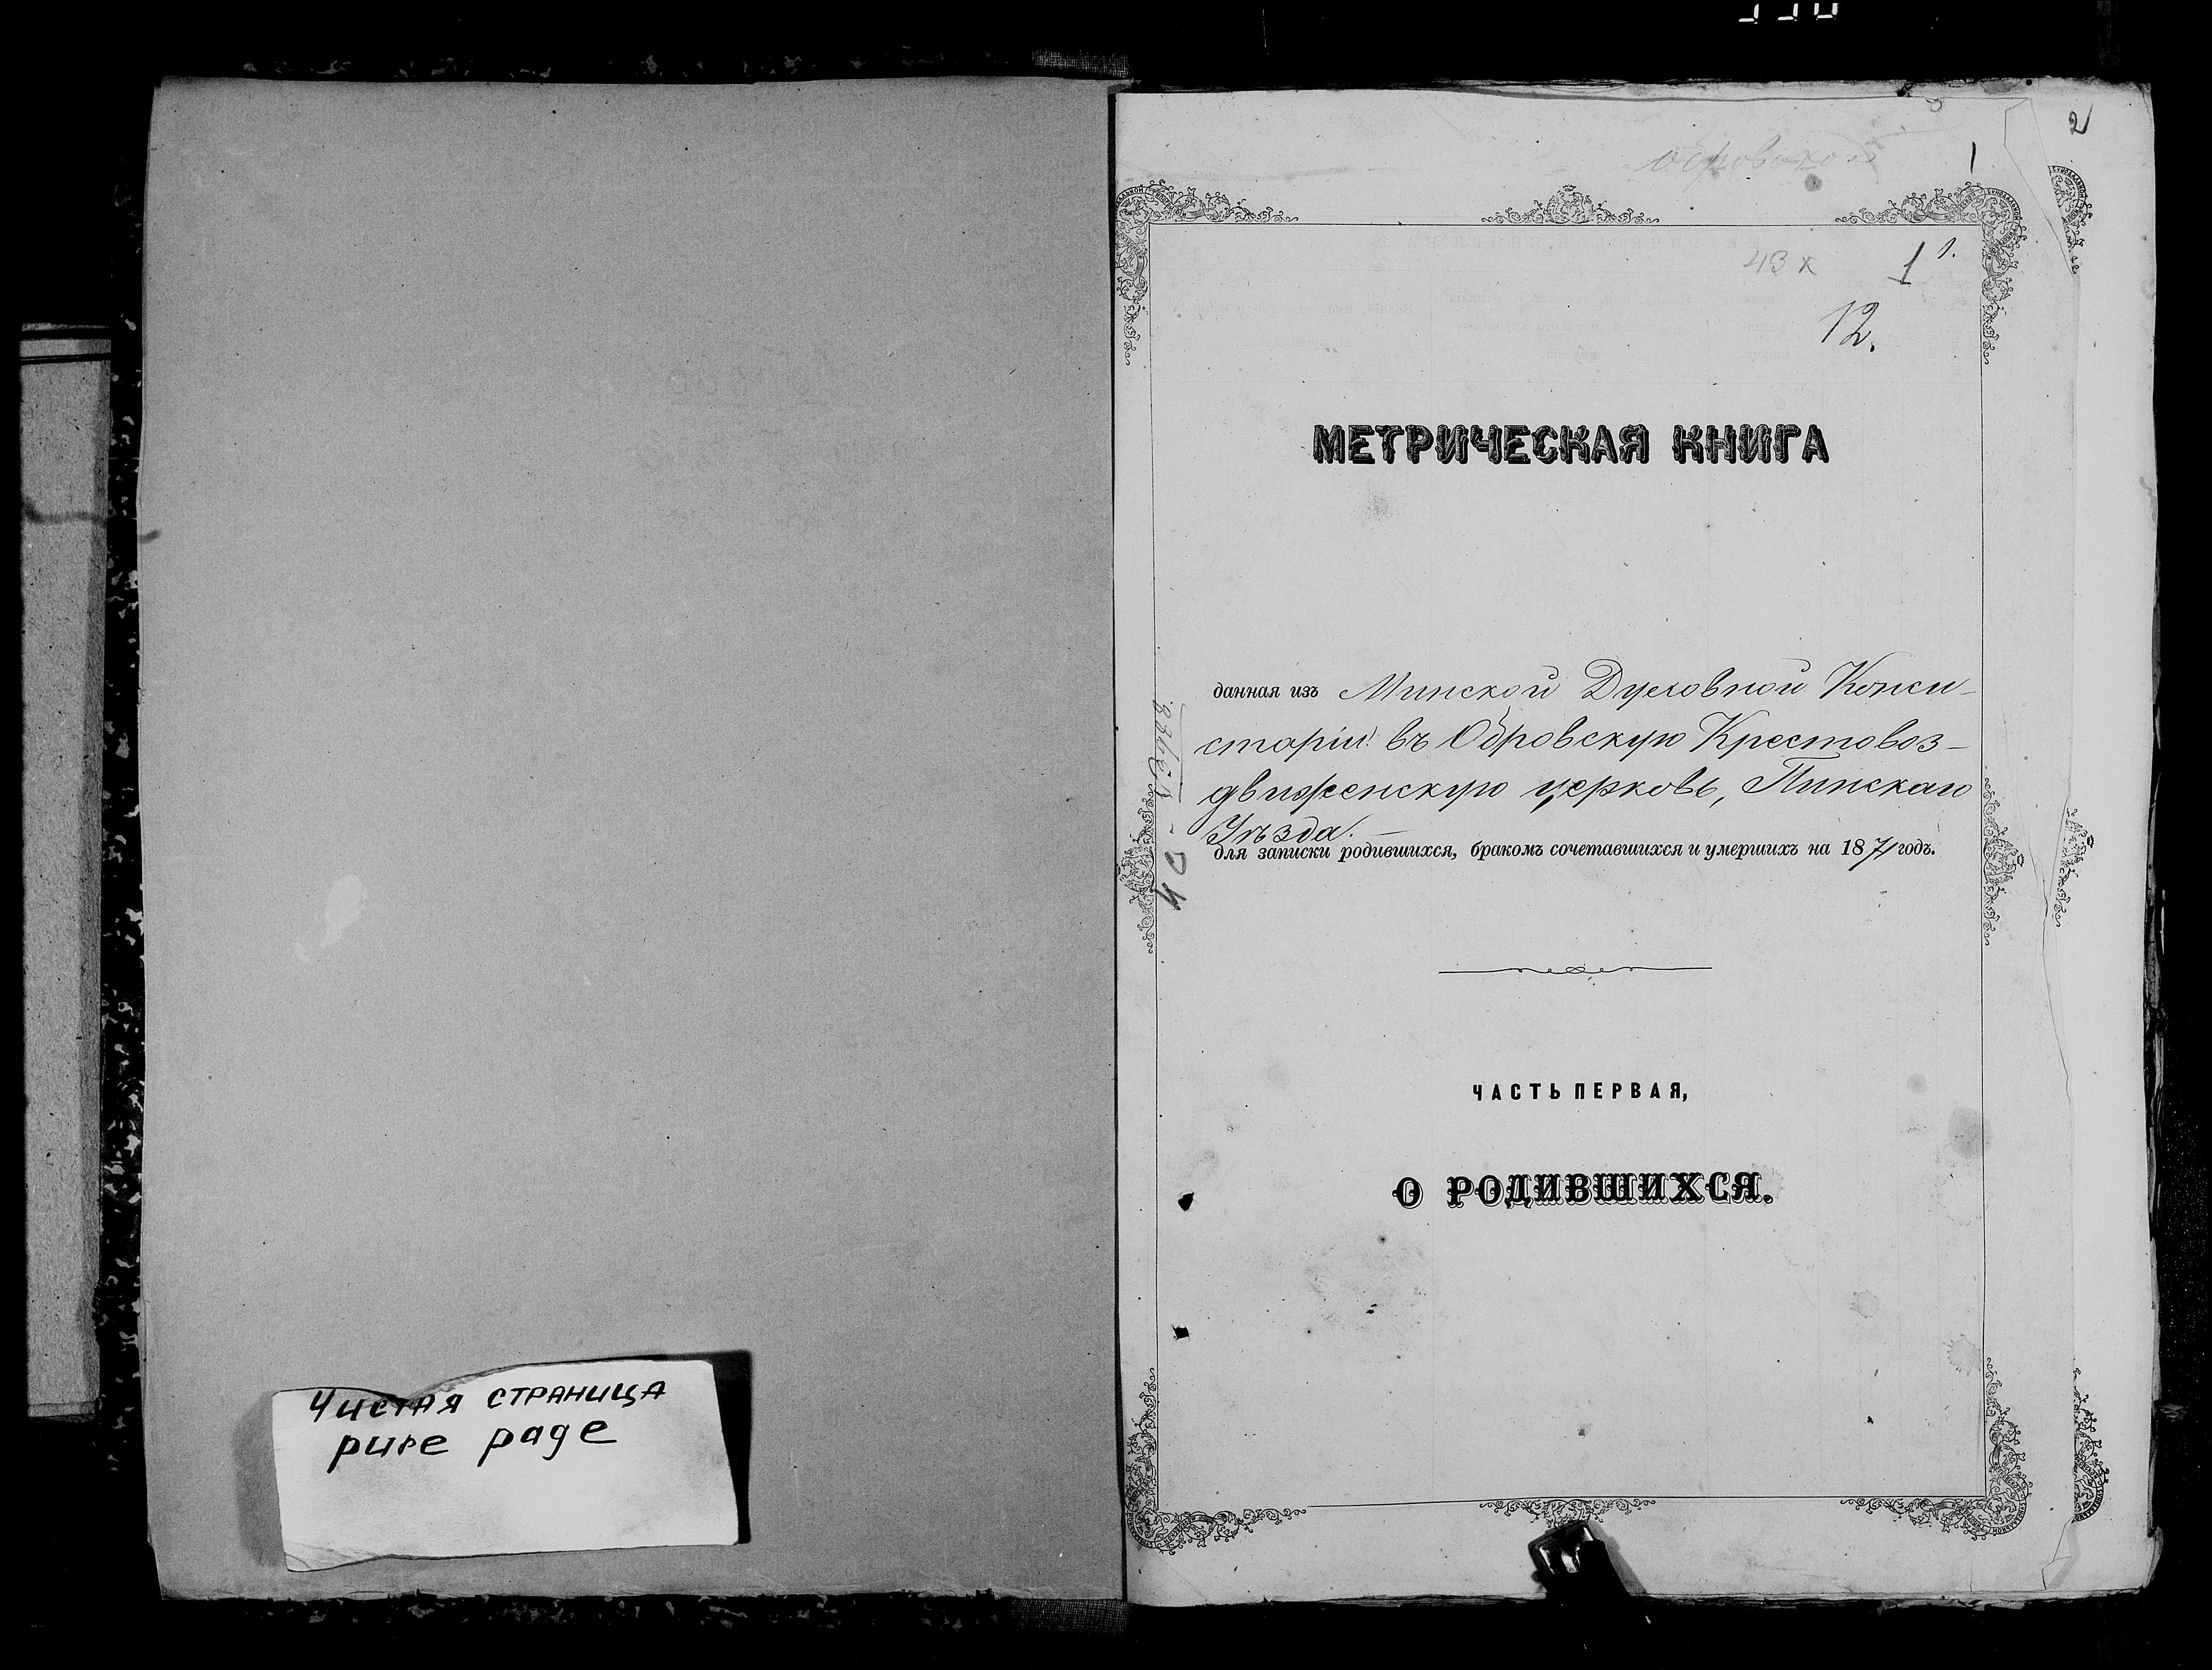 Чистая страница
pure page
2
1
43 х
1
12.
МЕТРИЧЕСКАЯ КНИГА
данная изъ Минской Духовной Конси-
сторіи въ Обровскую Крестовоз-
движенскую церковь, Пинскаго
Уѣзда. —
для записки родившихся, бракомъ сочетавшихся и умершихъ на 1871 годъ.
ЧАСТЬ ПЕРВАЯ,
О РОДИВШИХСЯ.